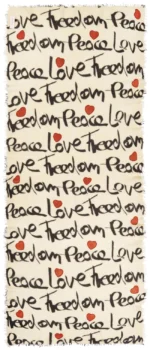 Love Freedom
Freedom Peace Love
Peace Love Freedom
Love Freedom Peace
Freedom Peace Love
Peace Love Freedom
Love Freedom Peace
Freedom Peace Love
Peace Love Freedom
Love Freedom Peace
Freedom Peace Love
Peace Love Freedom
Love Freedom Peace